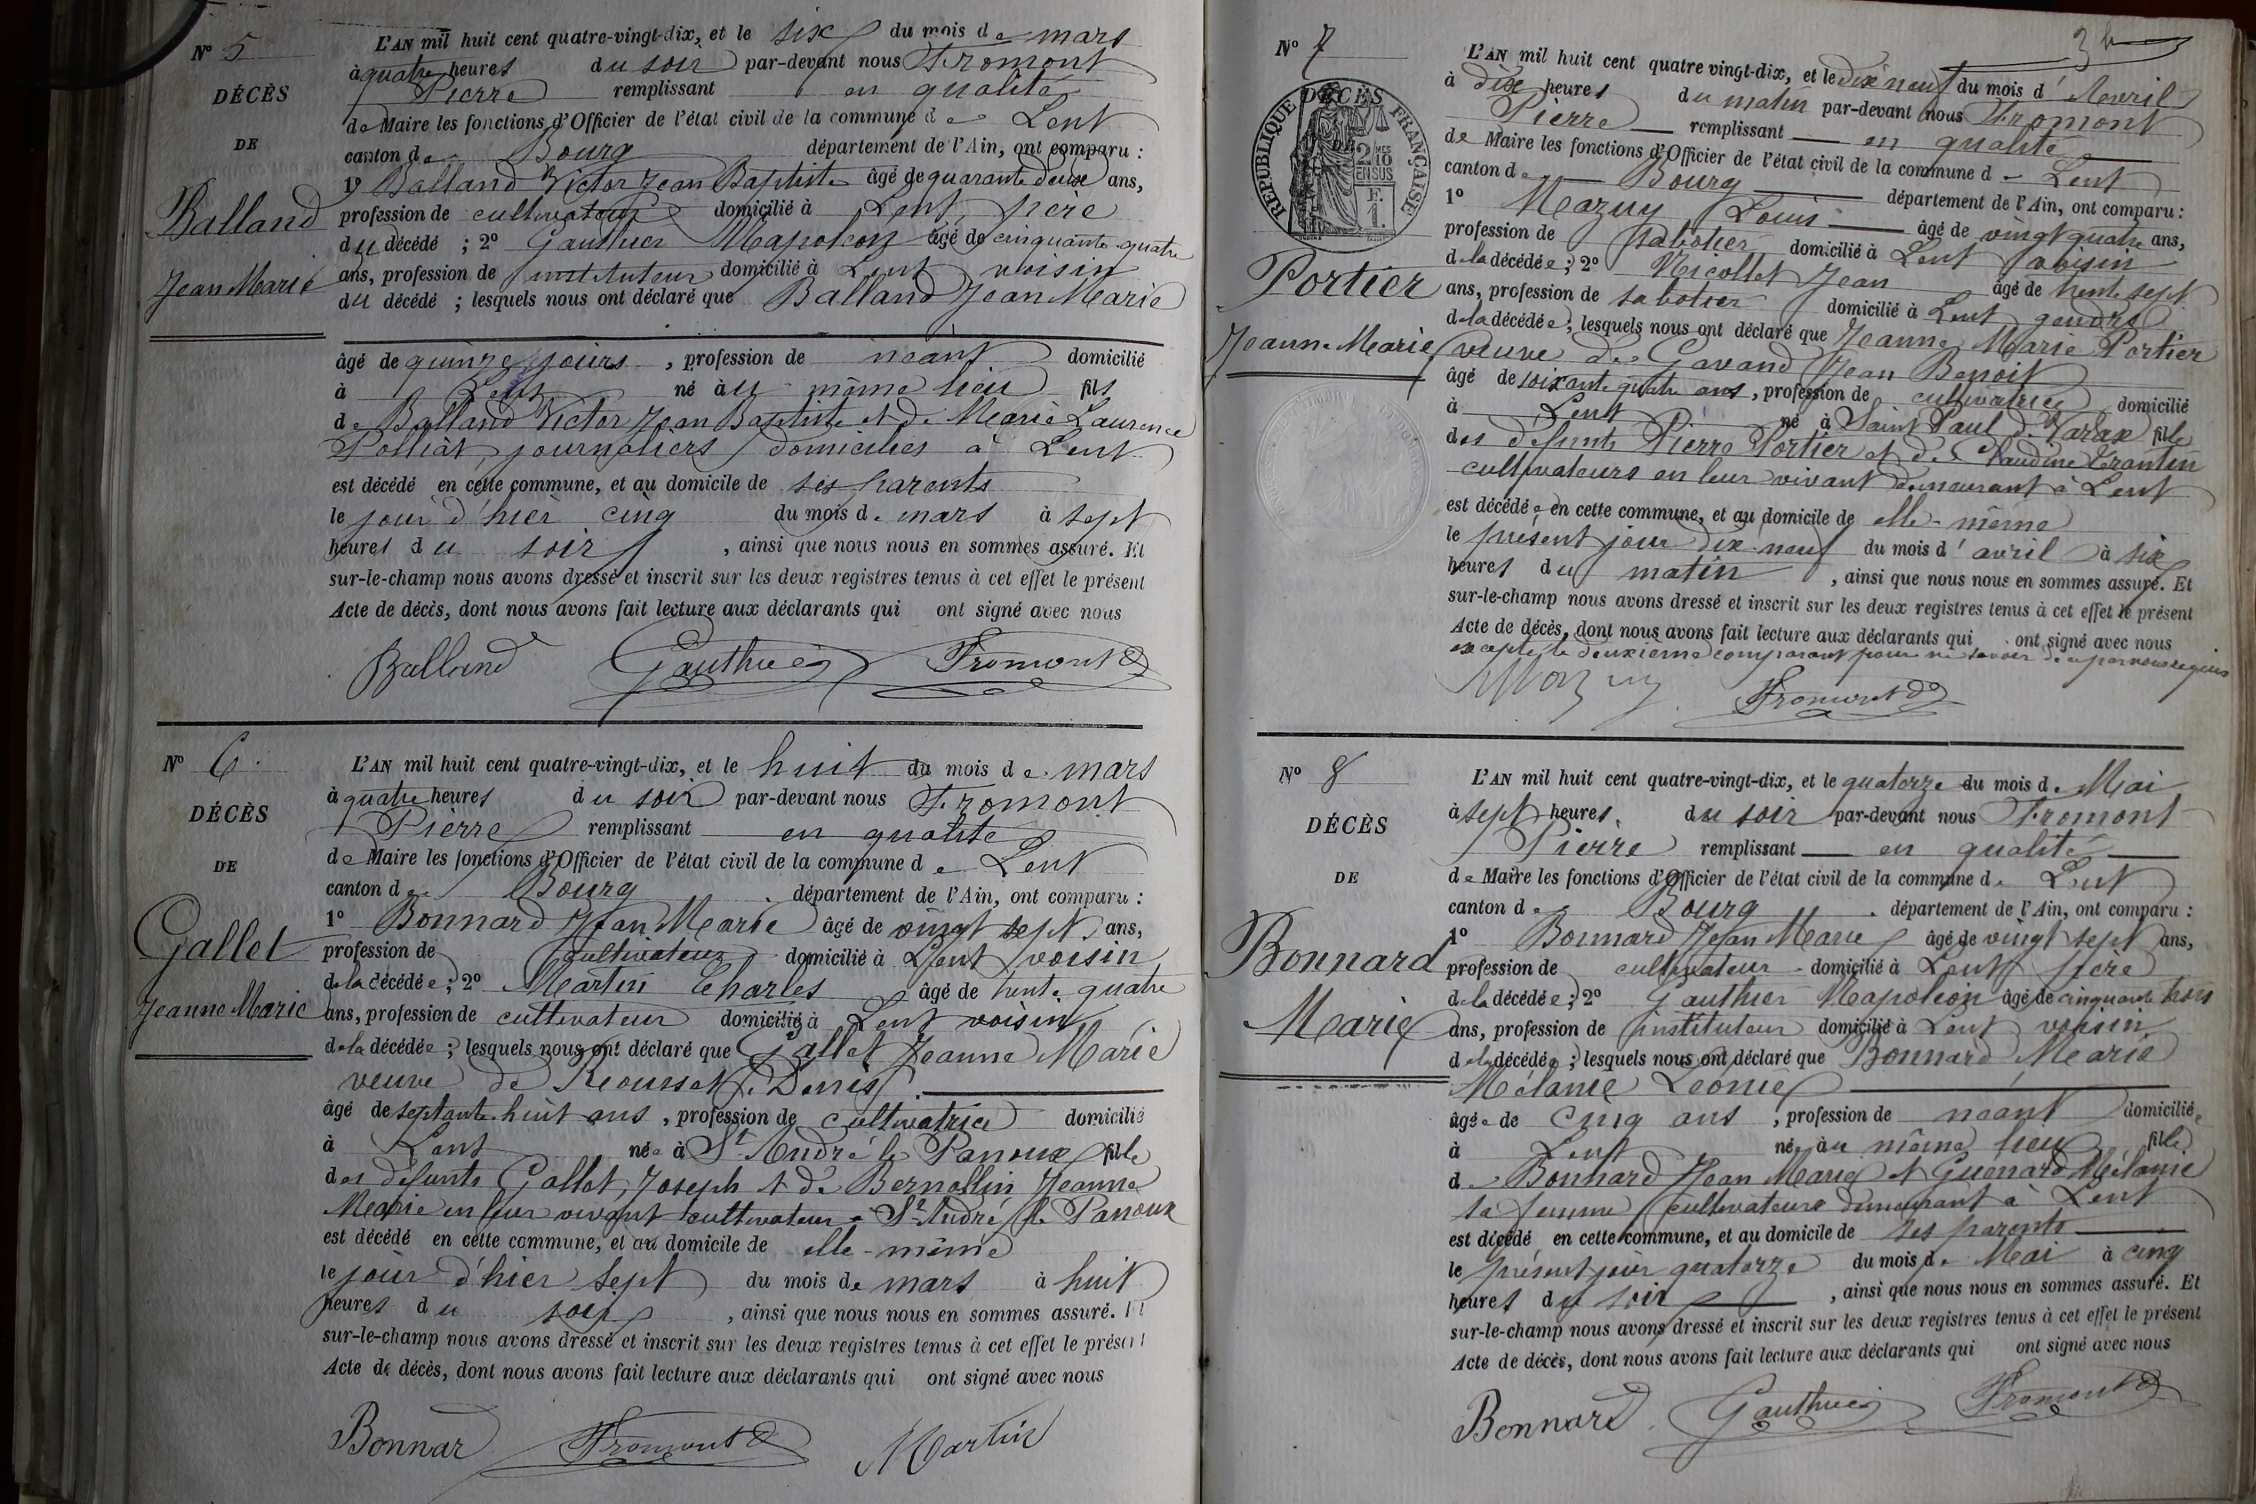 N° 5
DÉCÈS
DE
Balland
Jean Marie
L'AN mil huit cent quatre-vingt-dix, et le six du mois de mars
à quatre heures du soir par-devant nous Fromont
Pierre remplissant en qualité
de Maire les fonctions d'Officier de l'état civil de la commune de Lent
canton de Bourg département de l'Ain, ont comparu :
1° Balland Victor Jean Baptiste âgé de quarante deux ans,
profession de cultivateur domicilié à Lent, père
du décédé ; 2° Gauthier Napoléon âgé de cinquante quatre
ans, profession de instituteur domicilié à Lent voisin
du décédé ; lesquels nous ont déclaré que Balland Jean Marie
âgé de quinze jours, profession de néant domicilié
à Lent né au même lieu fils
de Balland Victor Jean Baptiste et de Marie Laurence
Polliat, journaliers domiciliés à Lent
est décédé en cette commune, et au domicile de ses parents
le jour d'hier cinq du mois de mars à sept
heures du soir, ainsi que nous nous en sommes assuré. Et
sur-le-champ nous avons dressé et inscrit sur les deux registres tenus à cet effet le présent
Acte de décès, dont nous avons fait lecture aux déclarants qui ont signé avec nous
Balland Gauthier Fromont
N° 6.
DÉCÈS
DE
Gallet
Jeanne Marie
L'AN mil huit cent quatre-vingt-dix, et le huit du mois de mars
à quatre heures du soir par-devant nous Fromont
Pierre remplissant en qualité
de Maire les fonctions d'Officier de l'état civil de la commune de Lent
canton de Bourg département de l'Ain, ont comparu :
1° Bonnard Jean Marie âgé de vingt sept ans,
profession de cultivateur domicilié à Lent voisin
de la décédée ; 2° Martin Charles âgé de trente quatre
ans, profession de cultivateur domicilié à Lent voisin
de la décédée ; lesquels nous ont déclaré que Gallet Jeanne Marie
veuve de Rousset Denis
âgé de septante huit ans, profession de cultivatrice domicilié
à Lent née à St André le Panoux fille
des défunts Gallet, Joseph et de Bernollin Jeanne
Marie en leur vivant cultivateurs à St André le Panoux
est décédé en cette commune, et au domicile de elle-même
le jour d'hier sept du mois de mars à huit
heures du soir, ainsi que nous nous en sommes assuré. Et
sur-le-champ nous avons dressé et inscrit sur les deux registres tenus à cet effet le présent
Acte de décès, dont nous avons fait lecture aux déclarants qui ont signé avec nous
Bonnar Fromont Martin
N° 7
RÉPUBLIQUE FRANÇAISE
2 10MES EN SUS
F. 1.
DÉCÈS
DE
Portier
Jeanne Marie
L'AN mil huit cent quatre vingt-dix, et le dix neuf du mois d'Avril
à dix heures du matin par-devant nous Fromont
Pierre remplissant en qualité
de Maire les fonctions d'Officier de l'état civil de la commune de Lent
canton de Bourg département de l'Ain, ont comparu :
1° Mazuy Louis âgé de vingt quatre ans,
profession de sabotier domicilié à Lent voisin
de la décédée ; 2° Nicollet Jean âgé de trente sept
ans, profession de sabotier domicilié à Lent gendre
de la décédée ; lesquels nous ont déclaré que Jeanne Marie Portier
veuve de Gavand Jean Benoit
âgé de soixante quatre ans, profession de cultivatrice domicilié
à Lent né à Saint Paul de Varax fille
des défunts Pierre Portier et de Claudine Trantin
cultivateurs en leur vivant demeurant à Lent
est décédée en cette commune, et au domicile de elle-même
le présent jour dix-neuf du mois d'avril à six
heures du matin, ainsi que nous nous en sommes assuré. Et
sur-le-champ nous avons dressé et inscrit sur les deux registres tenus à cet effet le présent
Acte de décès, dont nous avons fait lecture aux déclarants qui ont signé avec nous
excepté le deuxième comparant pour ne savoir de ce par nous requis
Mazuy Fromont
N° 8
DÉCÈS
DE
Bonnard
Marie
L'AN mil huit cent quatre-vingt-dix, et le quatorze du mois de Mai
à sept heures du soir par-devant nous Fromont
Pierre remplissant en qualité
de Maire les fonctions d'Officier de l'état civil de la commune de Lent
canton de Bourg département de l'Ain, ont comparu :
1° Bonnard Jean Marie âgé de vingt sept ans,
profession de cultivateur domicilié à Lent père
de la décédée ; 2° Gauthier Napoléon âgé de cinquante trois
ans, profession de instituteur domicilié à Lent voisin
de la décédée ; lesquels nous ont déclaré que Bonnard Marie
Mélanie Léonie
âgée de cinq ans, profession de néant domiciliée
à Lent née au même lieu fille
de Bonnard Jean Marie et Guenard Mélanie
sa femme cultivateurs demeurant à Lent
est décédé en cette commune, et au domicile de ses parents
le présent jour quatorze du mois de Mai à cinq
heures du soir, ainsi que nous nous en sommes assuré. Et
sur-le-champ nous avons dressé et inscrit sur les deux registres tenus à cet effet le présent
Acte de décès, dont nous avons fait lecture aux déclarants qui ont signé avec nous
Bonnard Gauthier Fromont